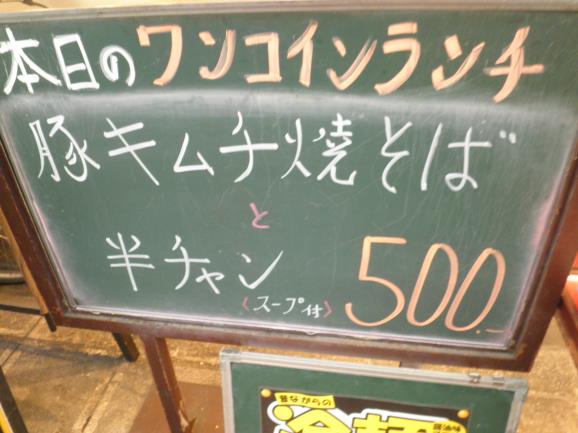 本日のワンコインランチ
豚キムチ焼そば
と
半チャン 500.-
〈スープ付〉
昔ながらの
冷麺
醤油味